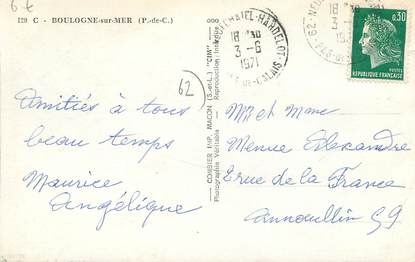 6€
129 C - BOULOGNE-sur-MER (P.-de-C.)
62
Amitiés à tous
beau temps
Maurice
Angélique
COMBIER IMP. MACON (S.-et-L.) "CIM"
Photographie Véritable - Reproduction Interdite
NEUFCHATEL-HARDELOT
18 H 30
3 - 6
1971
PAS-DE-CALAIS
18 H 30
3 - 6
0,30
POSTES
REPUBLIQUE FRANÇAISE
Mr et Mme
Menue Alexandre
rue de la France
Annoeullin 59